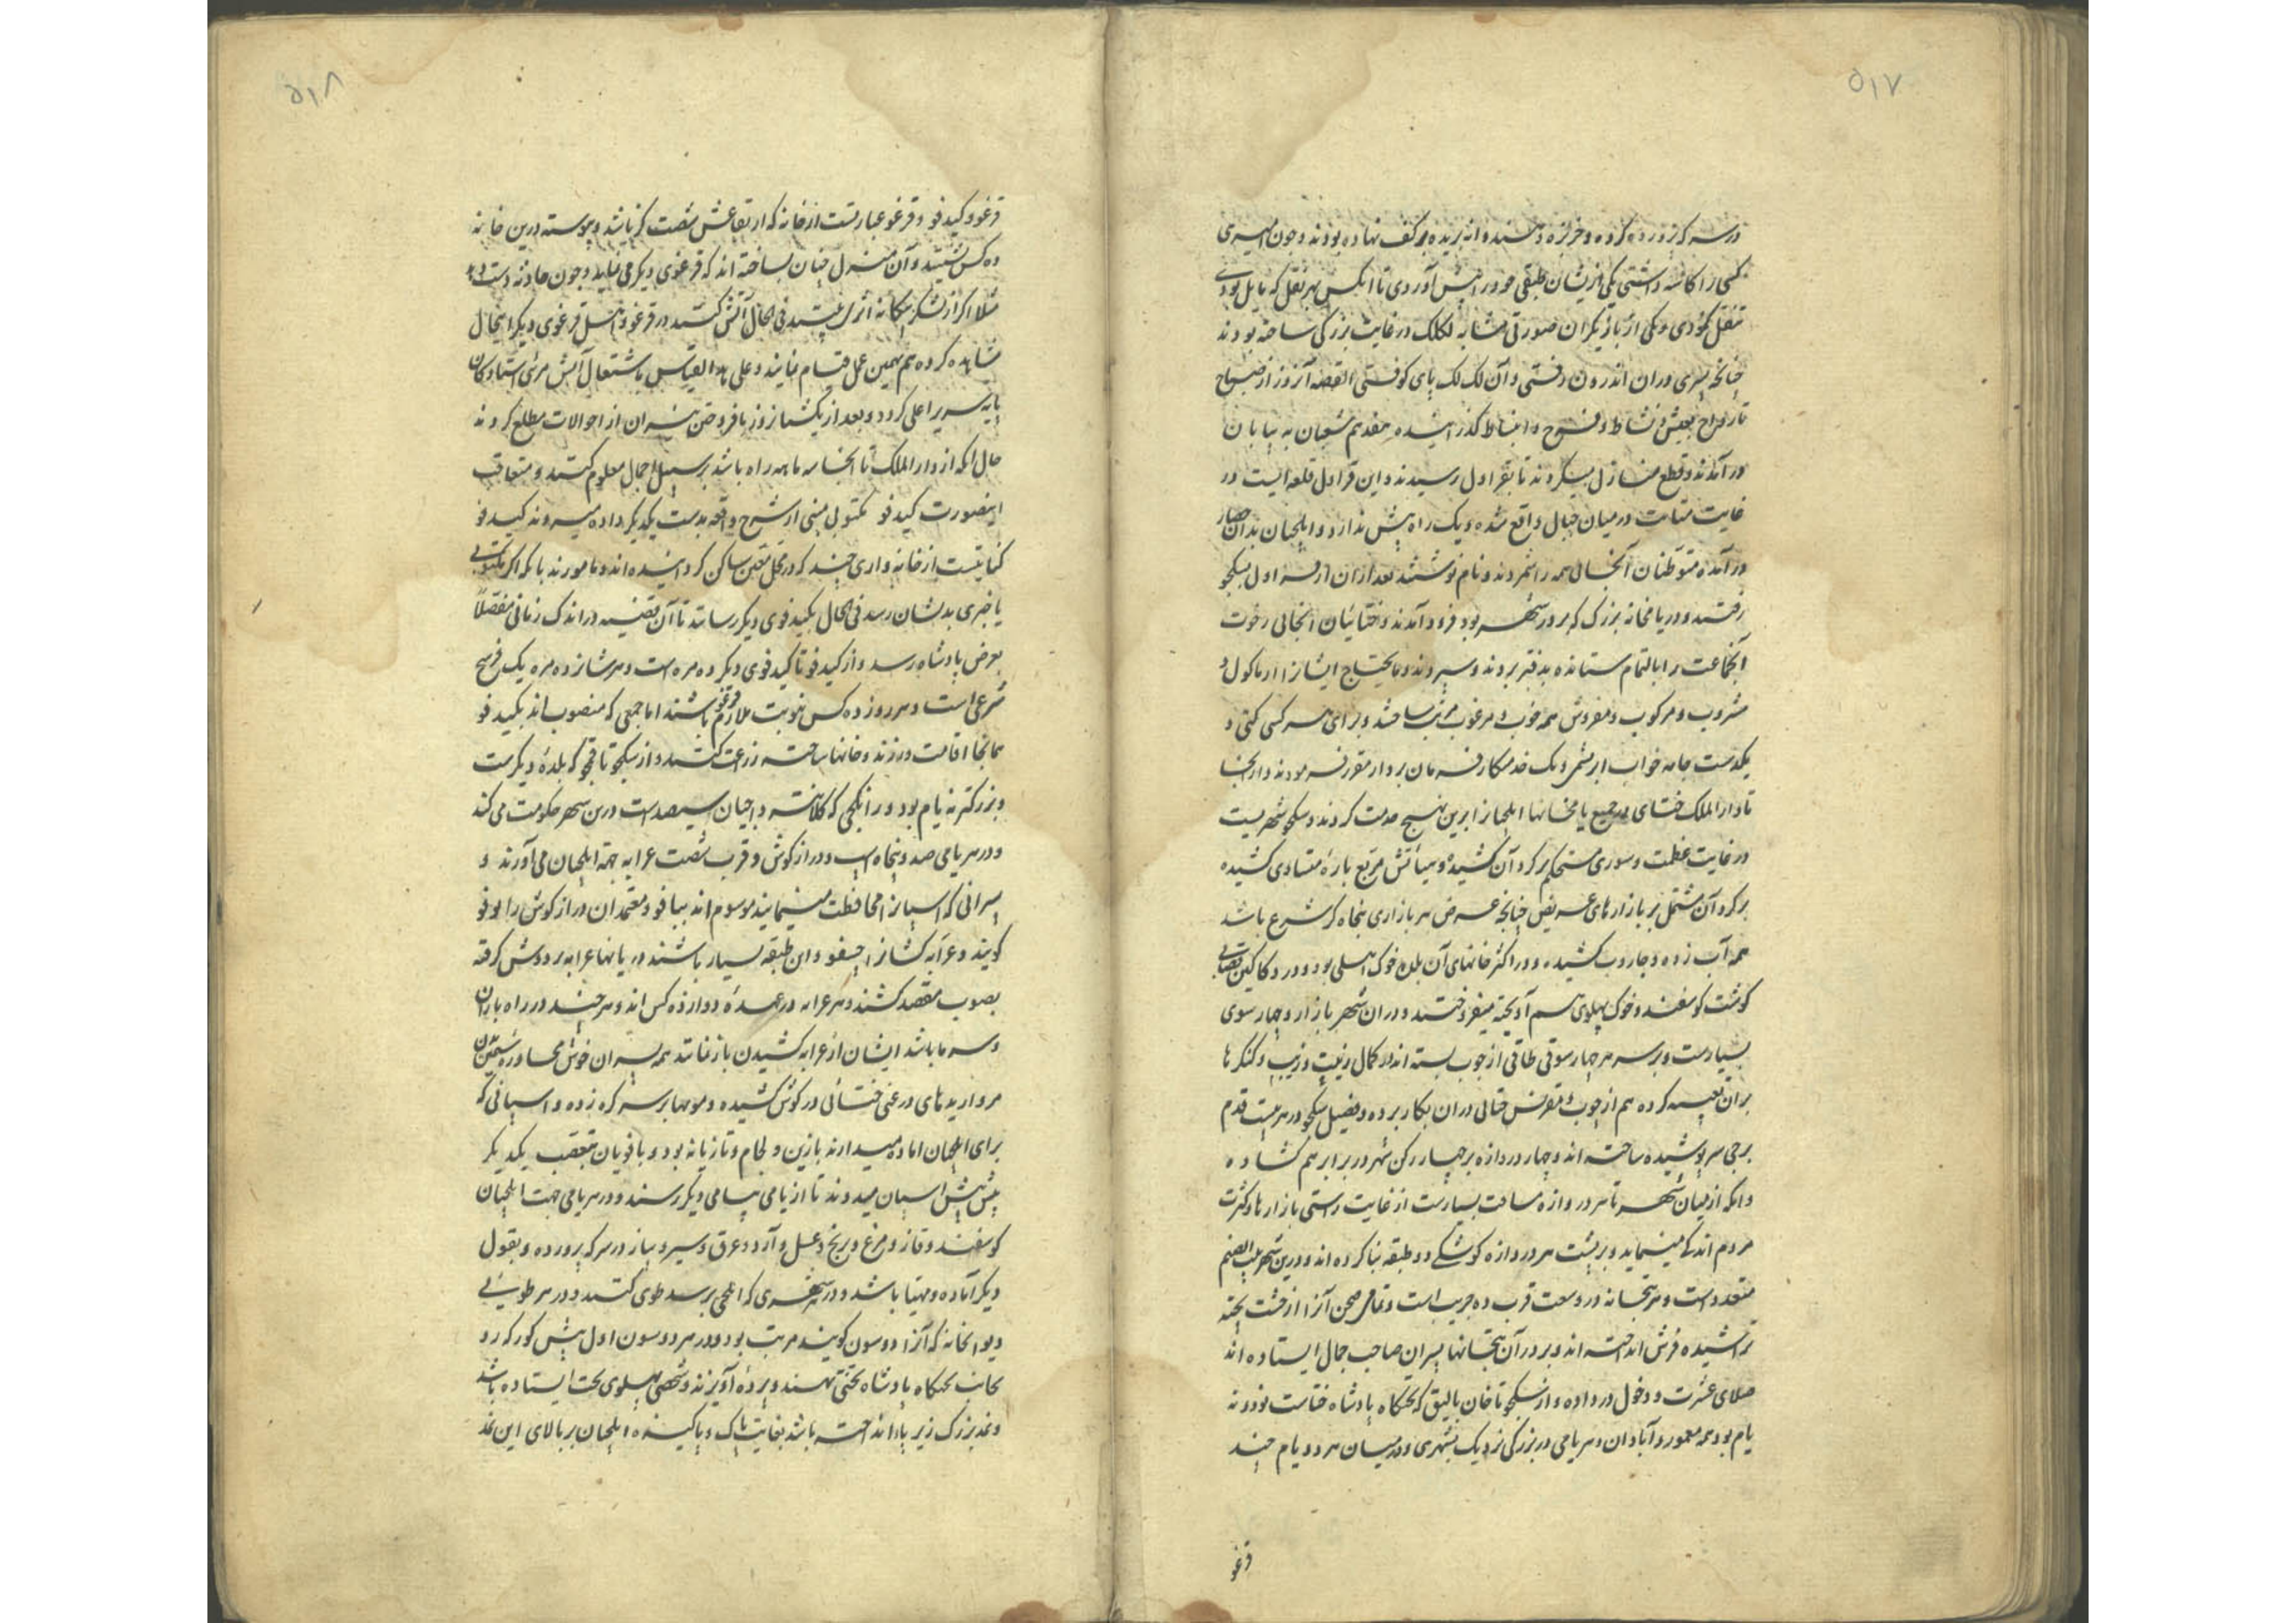 ۵۱۷
در سرکه پرورده کرده و خربزه و هندوانه بریده بر کف نهاده بودند و چون امیری
کسی را کاسه داشتی یکی ازیشان طبقی خود در پیش آوردی تا آنکس بهر نقل که مایل بودی
تنقل نمودی و یکی از بازیگران صورتی مشابه لکلک در غایت بزرگی ساخته بودند
چنانچه پسری در ان اندرون رفتی و آن لک لک پای کوفتی القصه آنروز از صباح
تا رواح بعیش و نشاط و فرح و انبساط گذرانیده هفدهم شعبان به بیابان
در آمدند و قطع منازل میکردند تا بقراول رسیدند و این قراول قلعه ایست در
غایت متانت در میان جبال واقع شده و یک راه بیش ندارد و ایلچیان بدان حصار
در آمده متوطنان آنجا ایشان همه را شمردند و نام نوشتند بعد از ان از قراول بسکجو
رفتند و در یامخانه بزرگ که بر در شهر بود فرود آمدند و ختائیان انجائی رخوت
آنجماعت را بالتمام ستانده بدفتر بردند و سپردند و مایحتاج ایشانرا از ماکول و
مشروب و مرکوب و مفروش همه خوب و مرغوب مرتب ساختند و برای هر کسی کتی و
یکدست جامه خواب ابریشمی و یک خدمتکار فرمان بردار مقرر فرمودند و از انجا
تا دار الملک ختای در جمیع یامخانها ایلچیانرا برین نهج خدمت کردند و سکجو شهریست
در غایت عظمت و سوری مستحکم بر گرد آن کشیده و هیأتش مربع باره متساوی کشیده
بر گرد آن مشتمل بر بازارهای عریض چنانچه عرض هر بازاری پنجاه گز شرع باشد
همه آب زده و جاروب کشیده و در اکثر خانهای آن بلده خوک اهلی بود و در دکاکین قصابی
گوشت گوسفند و خوک پهلوی هم آویخته میفروختند و در ان شهر بازار و چهار سوی
بسیارست و بر سر هر چهار سوقی طاقی از چوب بسته اند در کمال زینت و زیب و کنگرها
بران تعبیه کرده هم از چوب و مقرنس ختائی دران بکار برده و فصیل سکجو در هر بیست قدم
برجی سر پوشیده ساخته اند و چهار دروازه بر چهار رکن شهر در برابر هم گشاده
و انکه از میان شهر تا هر دروازه مسافت بسیارست از غایت راستی بازارها و کثرت
مردم اندکی مینماید و بر پشت هر دروازه کوشکی دو طبقه بنا کرده اند و درین شهر بیت الصنم
متعددست و هر بتخانه در وسعت قرب ده جریب است و تمامی صحن آنرا از خشت پخته
تراشیده فرش انداخته اند و بر در آن بتخانها پسران صاحب جمال ایستاده اند
صلای عشرت و دخول در داده و از سکجو تا خان بالیق که تختگاه پادشاه ختاست نود و نه
یام بود همه معمور و آبادان و هر یامی در بزرگی نزدیک بشهری و در میان هر دو یام چند
قرغو
۵۱۸
قرغو و کیدفو و قرغو عبارتست از خانه که ارتفاعش شصت گز باشد و پیوسته درین خانه
ده کس نشیند و آن منزل چنان ساخته اند که قرغوی دیگر می نماید و چون حادثه دست دهد
مثلا اگر از لشکر بیگانه اثری بینند فی الحال آتش کنند در قرغو و اهل قرغوی دیگر اینحال
مشاهده کرده هم بهمین عمل قیام نمایند و علی هذا القیاس تا اشتعال آتش مرئی ایستادگان
پایه سریر اعلی گردد و بعد از یکشبانروز بافروختن نیران از احوالات مطلع گردند
حال انکه از دار الملک تا انجا سه ماهه راه باشد بر سبیل اجمال معلوم کنند و متعاقب
اینصورت کیدفو مکتوب مبنی از شرح واقعه بدست یکدیگر داده میروند کیدفو
کنایتست از خانه واری چند که در محل معین ساکن گردانیده اند و مامورند بانکه اگر مکتوبی
یا خبری بدیشان رسد فی الحال بکیدفوی دیگر رسانند تا آن قضیه در اندک زمانی مفصلاً
بعرض پادشاه رسد و از کیدفو تا کیدفوی دیگر ده مره است و هر شانزده مره یک فرسخ
شرعی است و هر روز ده کس بنوبت ملازم قرغو باشند اما جمعی که منصوب اند بکیدفو
همانجا اقامت ورزند و خانها ساخته زراعت کنند و از سکجو تا قمجو که بلده دیگرست
و بزرگتر نه یام بود و دانکجی که کلانتر داجیان سرحد است درین شهر حکومت می کند
و در هر یامی صد و پنجاه اسب و دراز گوش و قرب شصت عرابه جهة ایلچیان می آورند و
پسرانی که اسپانرا محافظت مینمایند موسوم اند ببافو و معتمدان دراز گوش را لوفو
گویند و عرابه کشانرا جیفو و این طبقه بسیار باشند و ریسمانها عرابه بر دوش گرفته
بصوب مقصد کشند و هر عرابه در عهده دوازده کس اند و هر چند در راه باران
و سرما باشد ایشان از عرابه کشیدن باز نمانند همه پسران خوش محاوره سیمین تن
مرواریدهای دروغی ختائی در گوش کشیده و مویها بر سر گره زده و اسپانی که
برای ایلچیان اماده میدارند با زین و لجام و تازیانه بود و بافویان بتعقب یکدیگر
پیش پیش اسپان میدوند تا از یامی بیامی دیگر رسند و در هر یامی جهت ایلچیان
گوسفند و قاز و مرغ و برنج و عسل و آرد و عرق و سیر و پیاز در سرکه پرورده و بقول
دیگر آماده و مهیا باشد و در هر شهری که ایلچی برسد طوی کنند و در هر طوئی
دیوانخانه که آنرا دوسون گویند مرتب بود و در هر دوسون اول پیش کورکه رو
بجانب تختگاه پادشاه تختی نهند و پرده آویزند و شخصی پهلوی تخت ایستاده باشد
و نمد بزرگ زیر پا انداخته باشد بغایت پاک و پاکیزه و ایلچیان بر بالای این نمد